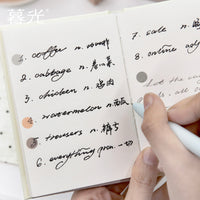 暮光
1. coffee n. 咖啡
2. cabbage n. 卷心菜
3. chicken n. 鸡肉
4. watermelon n. 西瓜
5. trousers n. 裤子
6. everything pron. 一切
7. sale n.
8. online adj